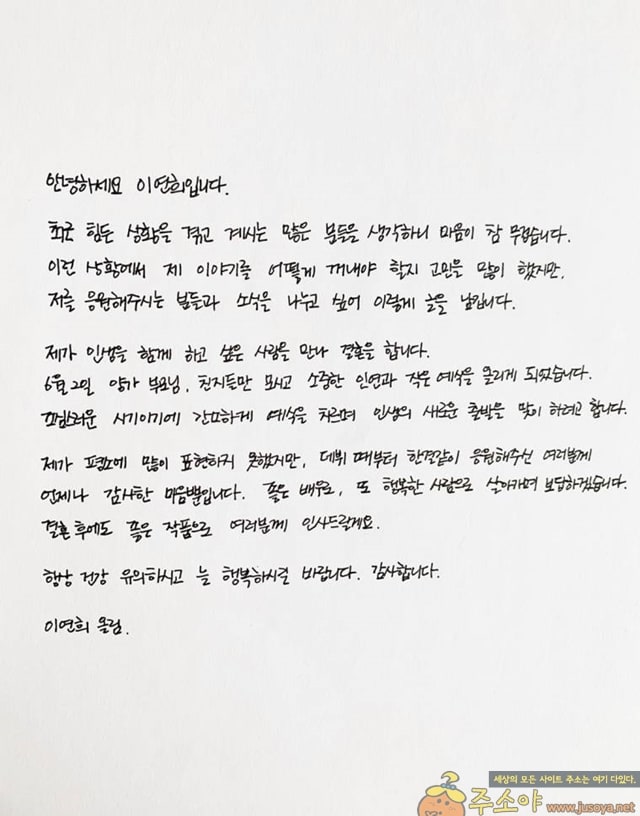 안녕하세요 이연희입니다.
최근 힘든 상황을 겪고 계시는 많은 분들을 생각하니 마음이 참 무겁습니다.
이런 상황에서 제 이야기를 어떻게 꺼내야 할지 고민을 많이 했지만,
저를 응원해주시는 분들과 소식을 나누고 싶어 이렇게 글을 남깁니다.
제가 인생을 함께 하고 싶은 사람을 만나 결혼을 합니다.
6월 2일 양가 부모님, 친지들만 모시고 소중한 인연과 작은 예식을 올리게 되었습니다.
조심스러운 시기이기에 간소하게 예식을 치르며 인생의 새로운 출발을 맞이 하려고 합니다.
제가 평소에 많이 표현하지 못했지만, 데뷔 때부터 한결같이 응원해주신 여러분께
언제나 감사한 마음뿐입니다. 좋은 배우로, 또 행복한 사람으로 살아가며 보답하겠습니다.
결혼 후에도 좋은 작품으로 여러분께 인사드릴게요.
항상 건강 유의하시고 늘 행복하시길 바랍니다. 감사합니다.
이연희 올림.
세상의 모든 사이트 주소는 여기 다있다.
주소야 www.jusoya.net